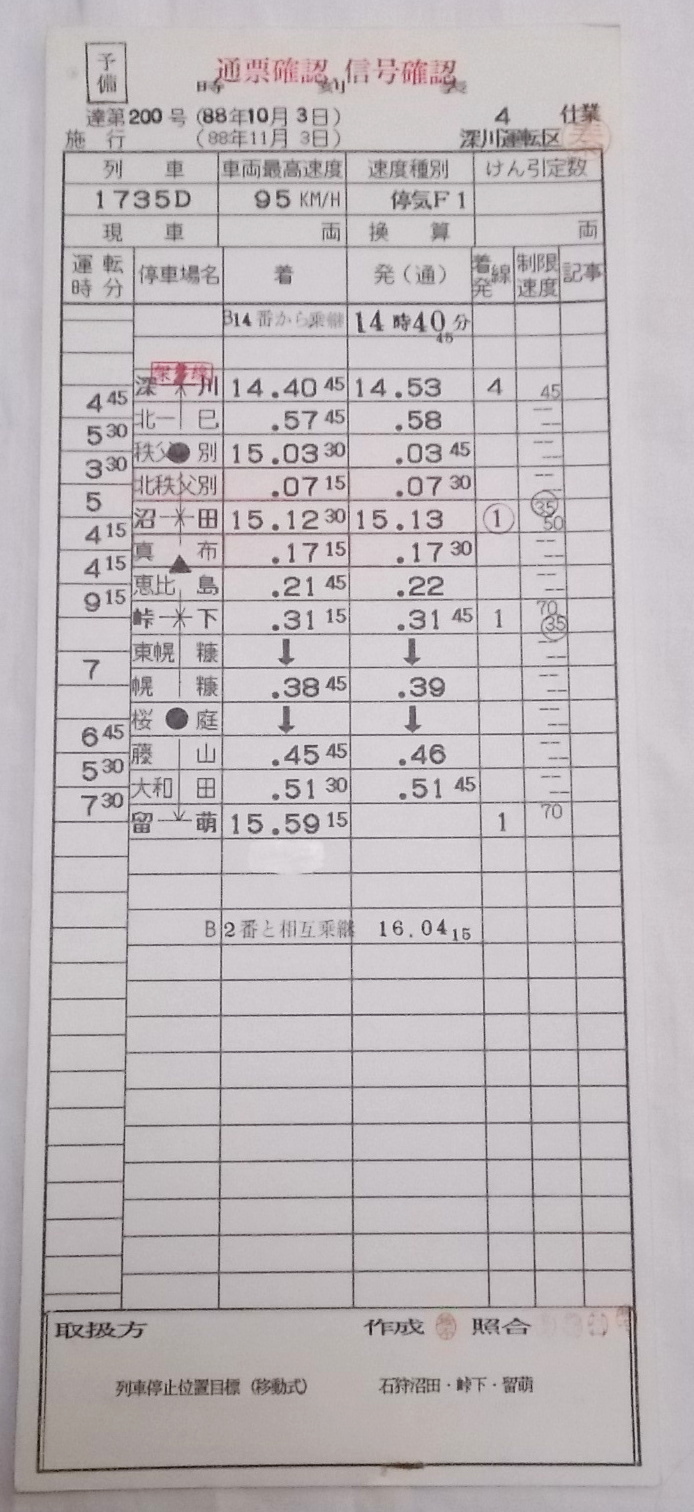 予備
通票確認 信号確認
時 刻 表
達第200号 (88年10月 3日) 4 仕業
施行 (88年11月 3日) 深川運転区
列 車 車両最高速度 速度種別 けん引定数
1735D 95 KM/H 停気F1
現 車 両 換 算 両
運転時分 停車場名 着 発(通) 着発線 制限速度 記事
B14番から乗継 14時40分45
深 川 14.40 45 14.53 4 45
4 45
北一 巳 .57 45 .58
5 30
秩父 別 15.03 30 .03 45
3 30
北秩父別 .07 15 .07 30
5
沼 田 15.12 30 15.13 1 35 50
4 15
真 布 .17 15 .17 30
4 15
恵比 島 .21 45 .22
9 15
峠 下 .31 15 .31 45 1 70 35
東幌 糠 ↓ ↓
7
幌 糠 .38 45 .39
桜 庭 ↓ ↓
6 45
藤 山 .45 45 .46
5 30
大和 田 .51 30 .51 45
7 30
留 萌 15.59 15 1 70
B2番と相互乗継 16.04 15
取扱方 作成 照合
列車停止位置目標(移動式) 石狩沼田・峠下・留萌